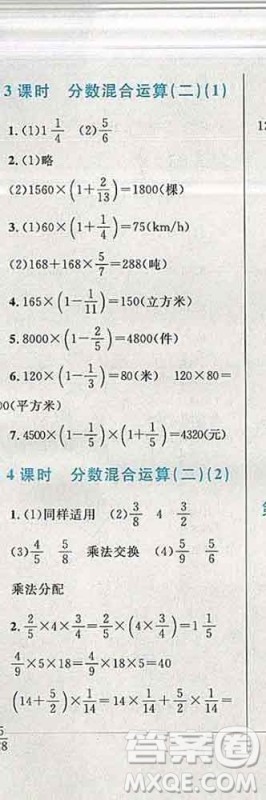 3 课时 分数混合运算(二)(1)
1.(1)1 1/4 (2)5/6
2.(1)略
(2)1560×(1+2/13)=1800(棵)
3.(1)60×(1+1/4)=75(km/h)
(2)168+168×5/7=288(吨)
4.165×(1-1/11)=150(立方米)
5.8000×(1-2/5)=4800(件)
6.120×(1-1/3)=80(米) 120×80=
00(平方米)
7.4500×(1-1/5)×(1+1/5)=4320(元)
4 课时 分数混合运算(二)(2)
1.(1)同样适用 (2)3/2 4 3/2
(3)4/5 5/8 乘法交换 4/5 5/8
乘法分配
2.2/5×4×3/4=2/5×(4×3/4)=1 1/5
4/9×5×18=4/9×18×5=40
(14+5/2)×1/14=14×1/14+5/2×1/14=
8
答案圈
MXQE.COM